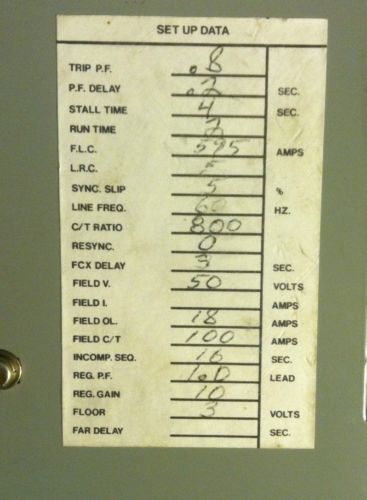 SET UP DATA
TRIP P.F. .8
P.F. DELAY .2 SEC.
STALL TIME 4 SEC.
RUN TIME 2
F.L.C. 595 AMPS
L.R.C.
SYNC. SLIP 5 %
LINE FREQ. 60 HZ.
C/T RATIO 800
RESYNC. 0
FCX DELAY 3 SEC.
FIELD V. 50 VOLTS
FIELD I. AMPS
FIELD OL. 18 AMPS
FIELD C/T 100 AMPS
INCOMP. SEQ. 16 SEC.
REG. P.F. 1.0 LEAD
REG. GAIN 10
FLOOR 3 VOLTS
FAR DELAY SEC.